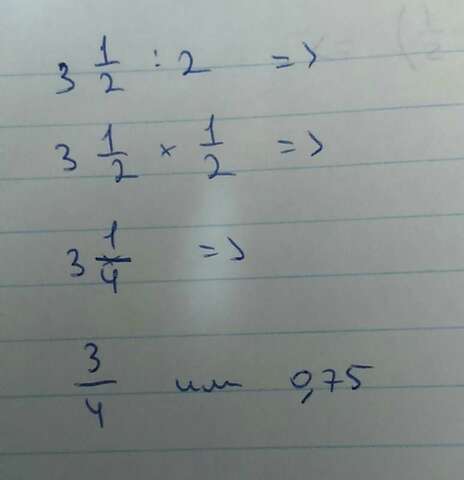 3 1/2 : 2 =>
3 1/2 × 1/2 =>
3 1/4 =>
3/4 или 0,75